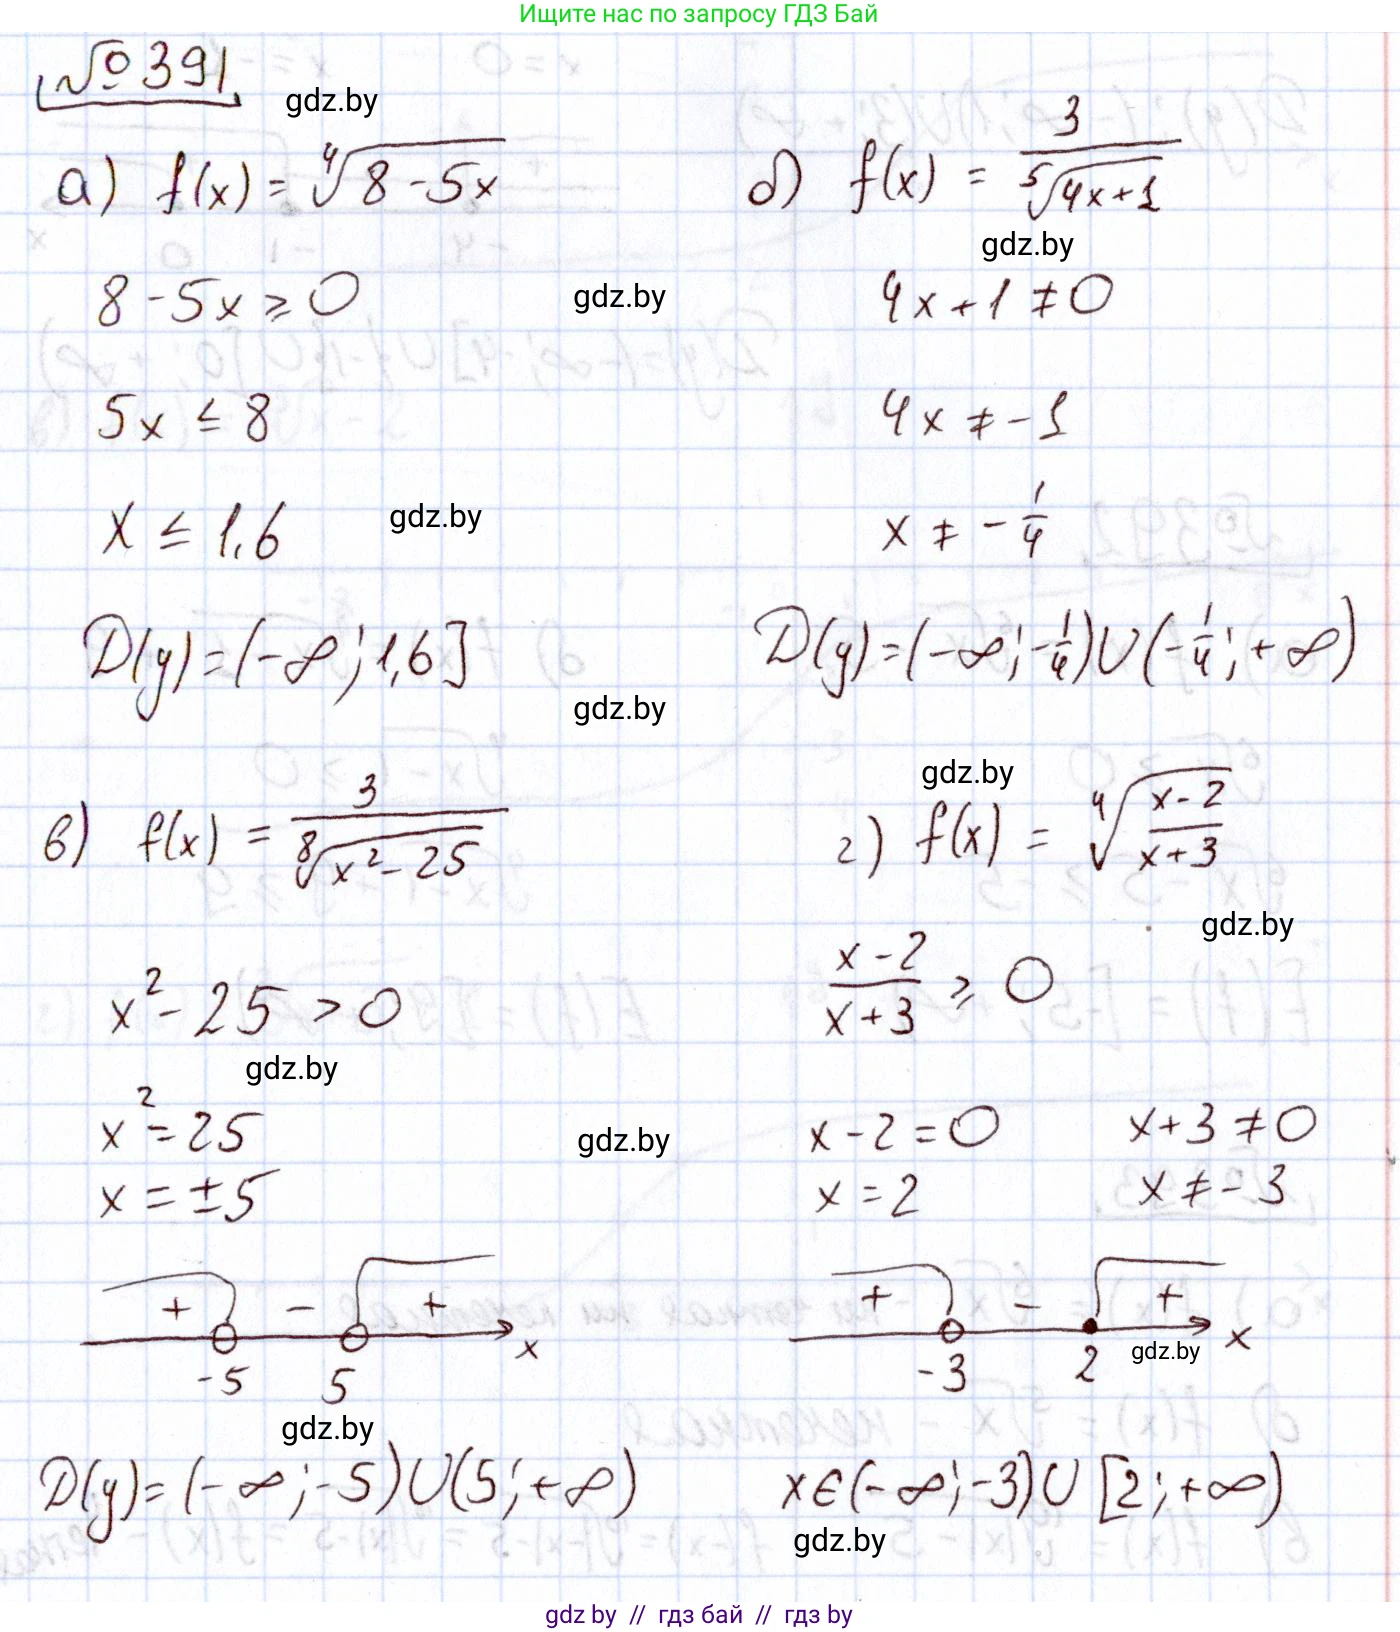 Ищите нас по запросу ГДЗ Бай
№391
gdz.by
а) f(x) = ⁴√(8 - 5x)
8 - 5x ⩾ 0
gdz.by
5x ≤ 8
x ≤ 1,6
gdz.by
D(y) = (-∞; 1,6]
gdz.by
б) f(x) = 3/⁵√(4x+1)
gdz.by
4x + 1 ≠ 0
4x ≠ -1
x ≠ -1/4
D(y) = (-∞; -1/4) U (-1/4; +∞)
в) f(x) = 3/⁸√(x² - 25)
x² - 25 > 0
gdz.by
x² = 25
gdz.by
x = ±5
+ - +
-5 5 x
gdz.by
D(y) = (-∞; -5) U (5; +∞)
gdz.by
г) f(x) = ⁴√((x-2)/(x+3))
gdz.by
(x-2)/(x+3) ⩾ 0
x - 2 = 0 x + 3 ≠ 0
x = 2 x ≠ -3
+ - +
-3 2 x
gdz.by
x ∈ (-∞; -3) U [2; +∞)
gdz.by
gdz by // гдз бай // гдз by